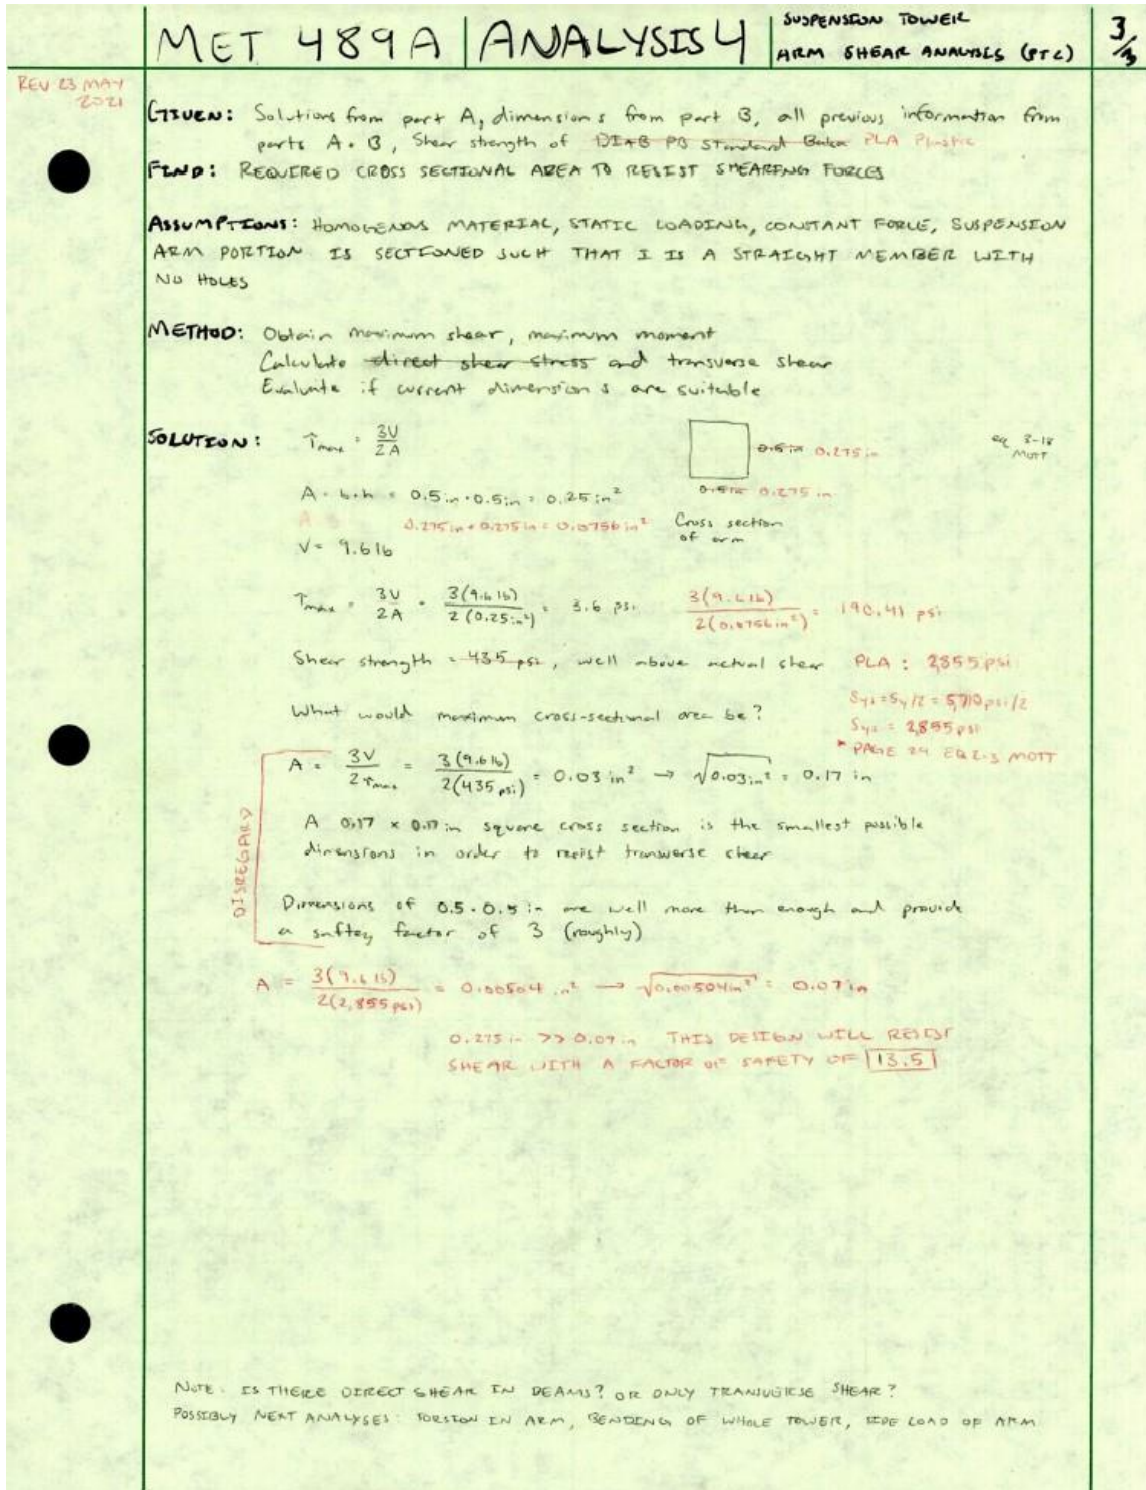 MET 489A | ANALYSIS 4 | SUSPENSION TOWER
ARM SHEAR ANALYSIS (PT C)
3/3
REV 23 MAY
2021
GIVEN: Solutions from part A, dimensions from part B, all previous information from
parts A + B, Shear strength of DIAB PB Standard Balsa PLA Plastic
FIND: REQUIRED CROSS SECTIONAL AREA TO RESIST SHEARING FORCES
ASSUMPTIONS: HOMOGENOUS MATERIAL, STATIC LOADING, CONSTANT FORCE, SUSPENSION
ARM PORTION IS SECTIONED SUCH THAT I IS A STRAIGHT MEMBER WITH
NO HOLES
METHOD: Obtain maximum shear, maximum moment
Calculate direct shear stress and transverse shear
Evaluate if current dimensions are suitable
SOLUTION: τmax = 3V/2A
0.5in 0.275in
eq 3-18
MOTT
0.5in 0.275 in
A = b·h = 0.5in·0.5in = 0.25in²
0.275in · 0.275in = 0.0756in²
Cross section
of arm
V = 9.6 lb
τmax = 3V/2A = 3(9.6 lb)/2(0.25in²) = 3.6 psi 3(9.6 lb)/2(0.0756in²) = 190.41 psi
Shear strength = 435 psi, well above actual shear PLA: 2,855 psi
Sys = Sy/2 = 5,710 psi/2
Sys = 2,855 psi
What would maximum cross-sectional area be?
* PAGE 24 EQ 2-3 MOTT
A = 3V/2τmax = 3(9.6 lb)/2(435 psi) = 0.03 in² → √0.03in² = 0.17 in
A 0.17 x 0.17in square cross section is the smallest possible
dimensions in order to resist transverse shear
DISREGARD
Dimensions of 0.5·0.5in are well more than enough and provide
a saftey factor of 3 (roughly)
A = 3(9.6 lb)/2(2,855 psi) = 0.00504 in² → √0.00504in² = 0.07in
0.275in >> 0.07in THIS DESIGN WILL RESIST
SHEAR WITH A FACTOR OF SAFETY OF 13.5
NOTE: IS THERE DIRECT SHEAR IN BEAMS? OR ONLY TRANSVERSE SHEAR?
POSSIBLY NEXT ANALYSES: TORSION IN ARM, BENDING OF WHOLE TOWER, SIDE LOAD OF ARM